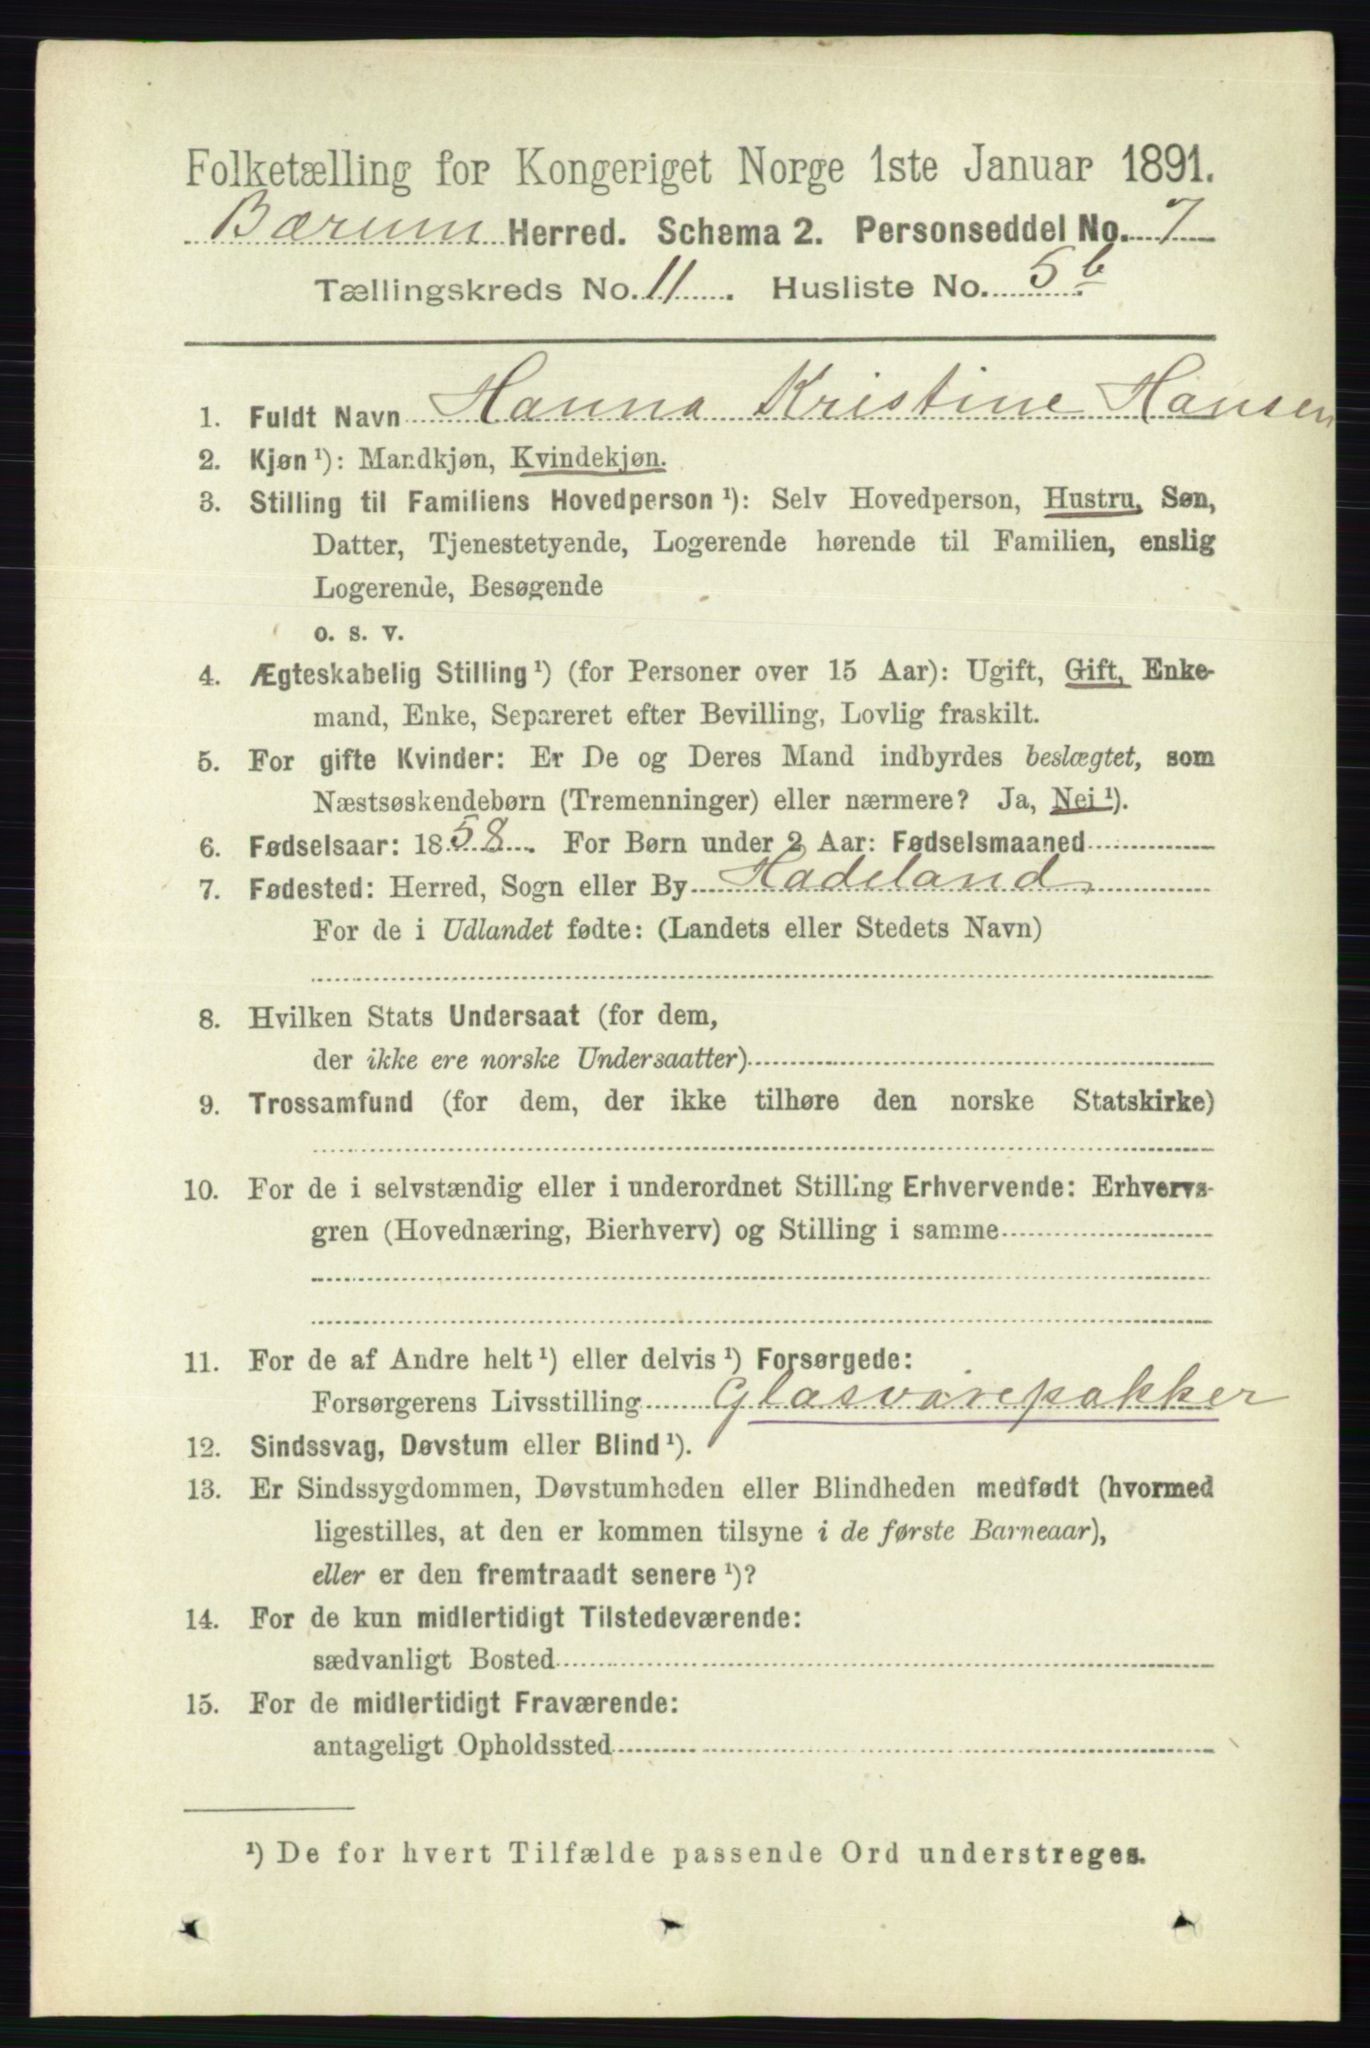 Folketælling for Kongeriget Norge 1ste Januar 1891.
Bærum Herred. Schema 2. Personseddel No. 7
Tællingskreds No. 11. Husliste No. 5b
1. Fuldt Navn Hanna Kristine Hansen
2. Kjøn¹): Mandkjøn, Kvindekjøn.
3. Stilling til Familiens Hovedperson¹): Selv Hovedperson, Hustru, Søn,
Datter, Tjenestetyende, Logerende hørende til Familien, enslig
Logerende, Besøgende
o. s. v.
4. Ægteskabelig Stilling¹) (for Personer over 15 Aar): Ugift, Gift, Enke-
mand, Enke, Separeret efter Bevilling, Lovlig fraskilt.
5. For gifte Kvinder: Er De og Deres Mand indbyrdes beslægtet, som
Næstsøskendebørn (Tremenninger) eller nærmere? Ja, Nei¹).
6. Fødselsaar: 1858. For Børn under 2 Aar: Fødselsmaaned
7. Fødested: Herred, Sogn eller By Hadeland
For de i Udlandet fødte: (Landets eller Stedets Navn)
8. Hvilken Stats Undersaat (for dem,
der ikke ere norske Undersaatter)
9. Trossamfund (for dem, der ikke tilhøre den norske Statskirke)
10. For de i selvstændig eller i underordnet Stilling Erhvervende: Erhvervs-
gren (Hovednæring, Bierhverv) og Stilling i samme
11. For de af Andre helt¹) eller delvis¹) Forsørgede:
Forsørgerens Livsstilling Glasvarepakker
12. Sindssvag, Døvstum eller Blind¹).
13. Er Sindssygdommen, Døvstumheden eller Blindheden medfødt (hvormed
ligestilles, at den er kommen tilsyne i de første Barneaar),
eller er den fremtraadt senere¹)?
14. For de kun midlertidigt Tilstedeværende:
sædvanligt Bosted
15. For de midlertidigt Fraværende:
antageligt Opholdssted
¹) De for hvert Tilfælde passende Ord understreges.